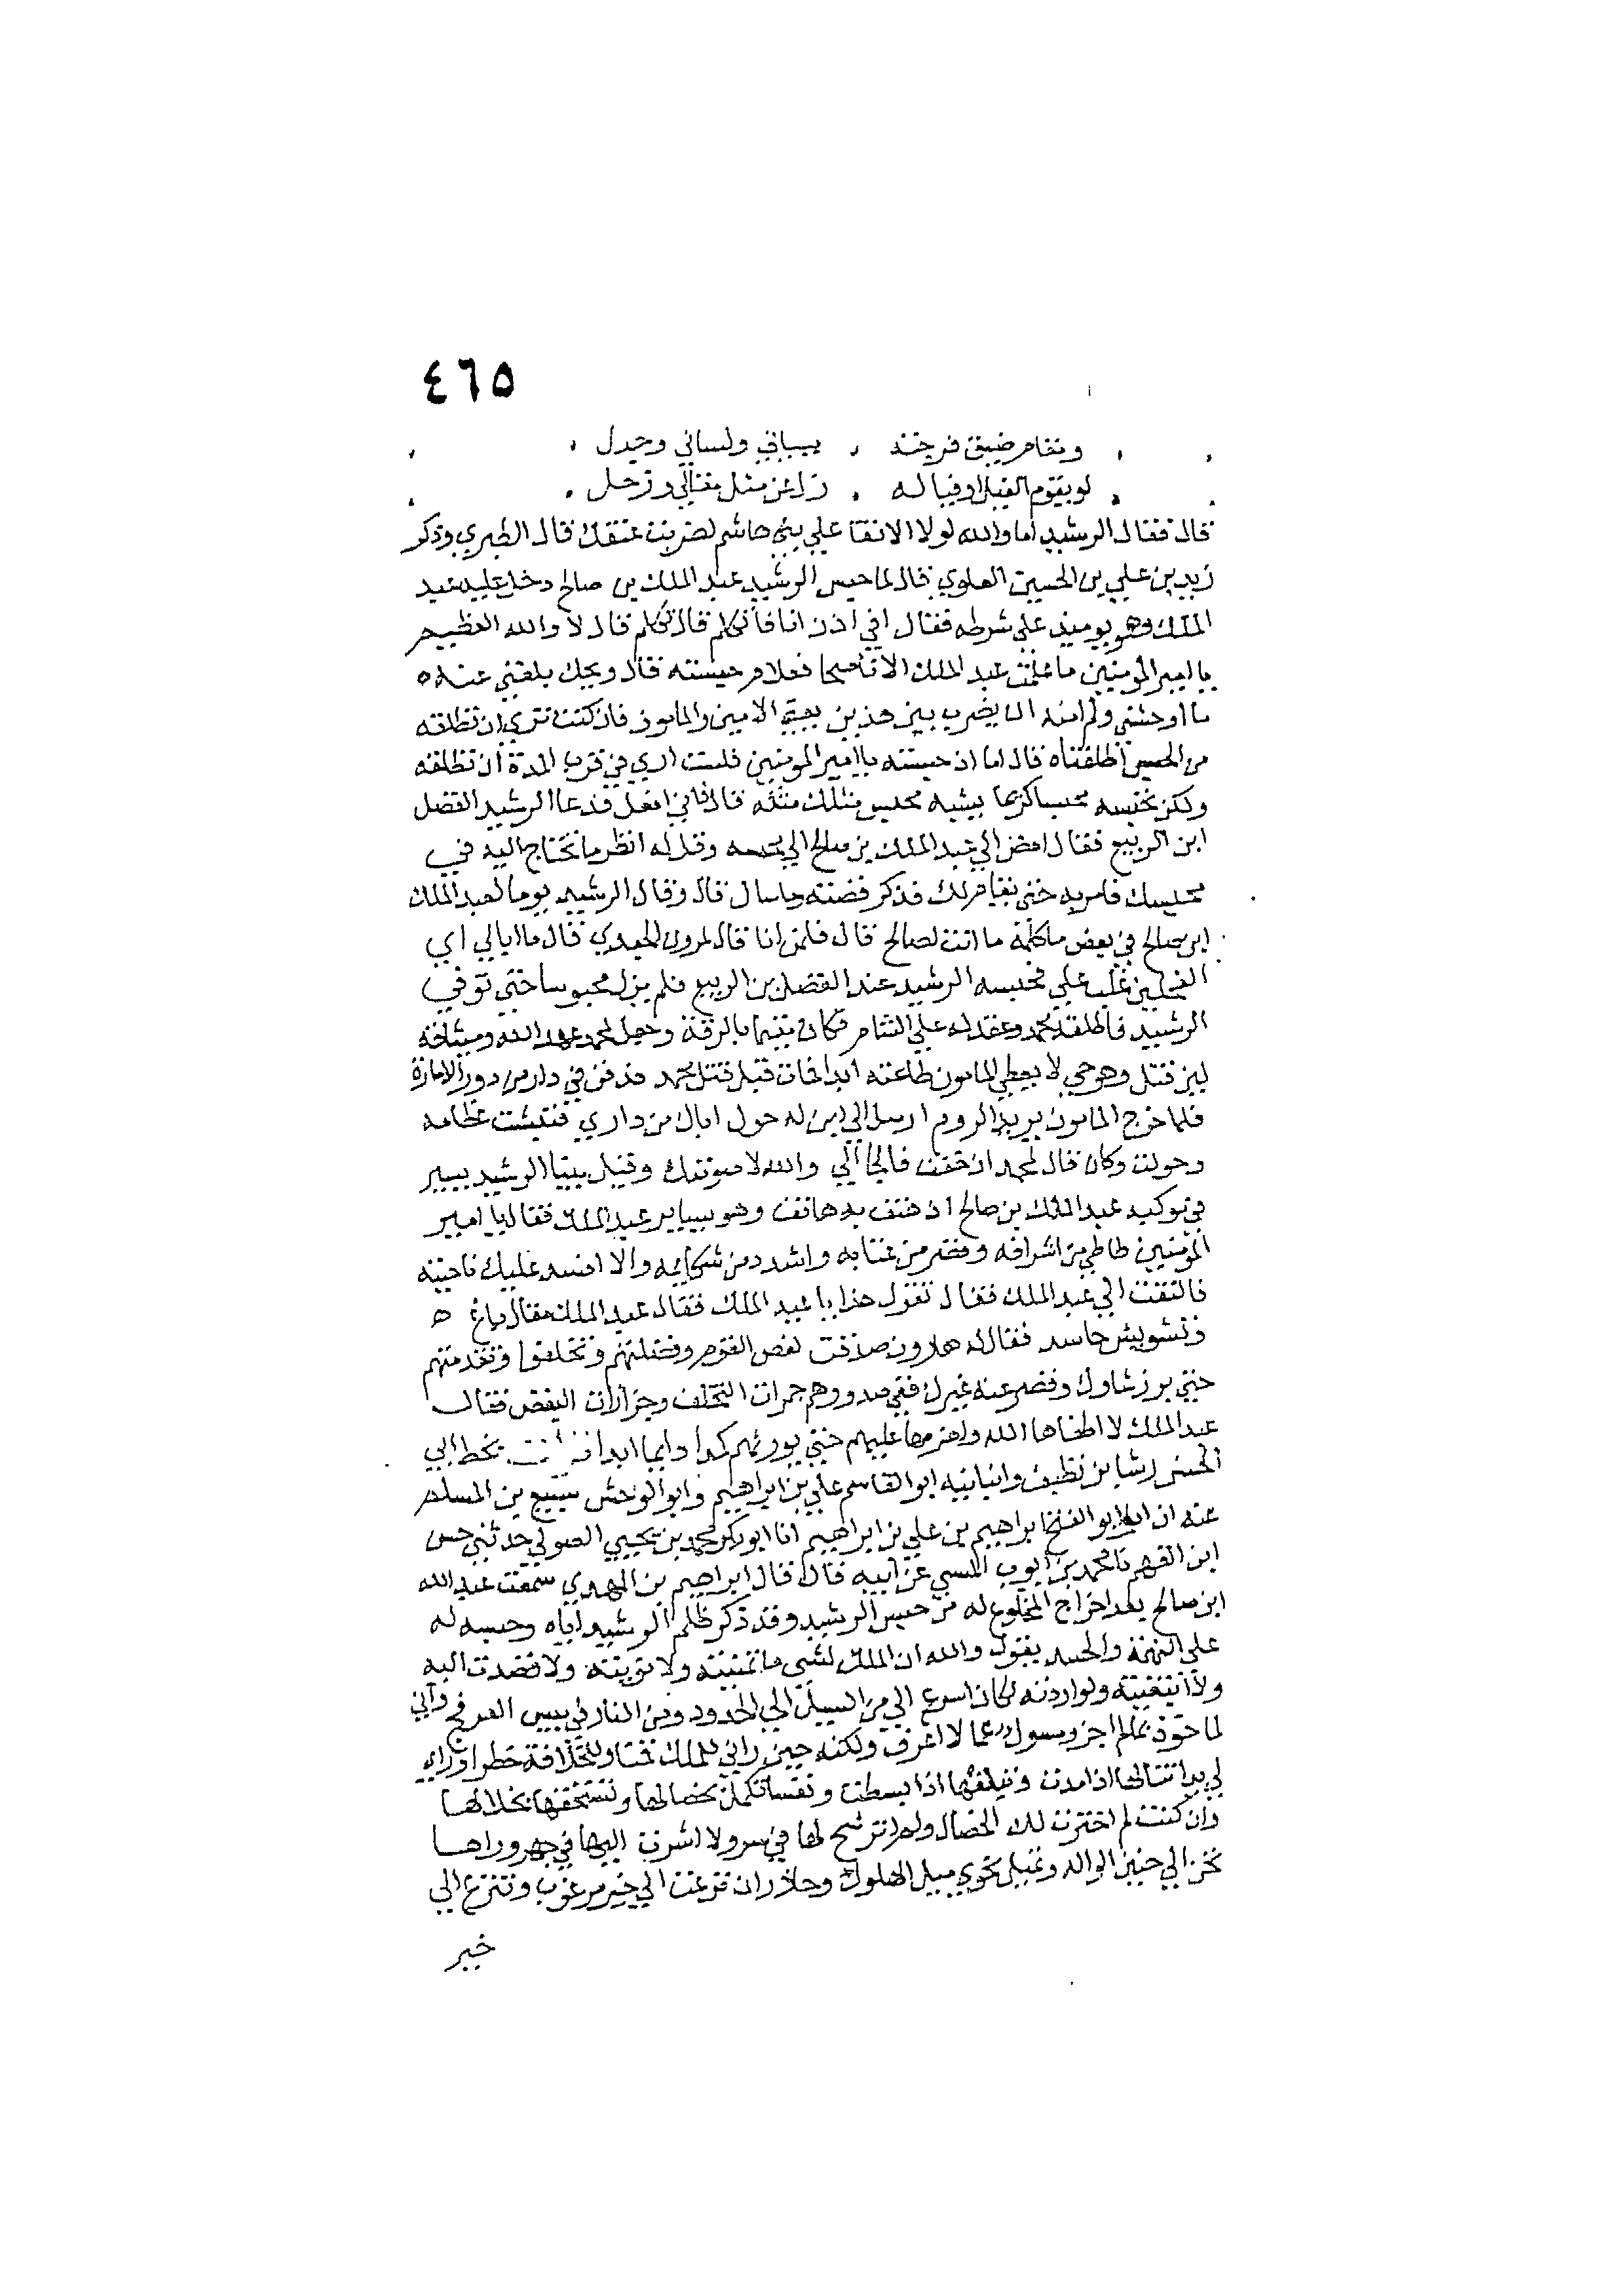 ٤٦٥
ومقام ضيق فرجته ببياني ولساني وجدل
لو يقوم الفيل او فياله زل عن مثل مقالي وزحل
قال فقال الرشيد اما والله لولا الابقا علي بني هاشم لضربت عنقك قال الطبري وذكر
زيد بن علي بن الحسين العلوي قال لما حبس الرشيد عبد الملك بن صالح دخل عليه عبد
الملك وهو يوميذ علي شرطه فقال افي اذن انا فاتكلم قال تكلم قال لا والله العظيم
يا امير المومنين ما علمت عبد الملك الا ناصحا فعلام حبسته قال ويحك بلغني عنه
ما اوحشني ولم امنه ان يضرب بين هذين يعني الامين والمامون فان كنت تري ان نطلقه
من الحبس اطلقناه قال اما اذ حبسته يا امير المومنين فلست اري في قرب المدة ان تطلقه
ولكن تحبسه محبسا كريما يشبه محبس مثلك مثله قال فاني افعل فدعا الرشيد الفضل
ابن الربيع فقال امض الي عبد الملك بن صالح الي محبسه وقل له انظر ما تحتاج اليه في
محبسك فامر به حتي يقام لك فذكر قصته وما سال قال وقال الرشيد يوما لعبد الملك
ابن صالح في بعض ما كلمه ما انت لصالح قال فلمن انا قال لمروان الجعدي قال ما ابالي اي
الفحلين غلب علي فحبسه الرشيد عند الفضل بن الربيع فلم يزل محبوسا حتي توفي
الرشيد فاطلقه محمد وعقد له علي الشام فكان مقيما بالرقة وجعل لمحمد عهد الله وميثاقه
لين قتل وهو حي لا يعطي المامون طاعته ابدا فمات قبل قتل محمد فدفن في دار من دور الامارة
فلما خرج المامون يريد الروم ارسل الي ابن له حول اباك من داري فنبشت عظامه
وحولت وكان قال لمحمد ان خفت فالجا الي والله لاصونتك وقيل بينا الرشيد يسير
في توكيد عبد الملك بن صالح اذ هتف به هاتف وهو يساير عبد الملك فقال يا امير
المومنين طاطي من اشرافه وقصر من عنانه واشدد من شكايمه والا افسد عليك ناحيته
فالتفت الي عبد الملك فقال تقول هذا يا عبد الملك فقال عبد الملك مقال باغ
وتشويش حاسد فقال له هارون صدقت نقص القوم وفضلتهم وتخلفوا وتقدمتهم
حتي برز شاوك وقصر عنه غيرك ففي صدورهم جمرات التخلف وحزازات النقص فقال
عبد الملك لا اطفاها الله واضرمها عليهم حتي يورثهم كمدا دايما ابدا قرات بخط ابي
الحسن رشا بن نظيف وانبانيه ابو القاسم علي بن ابراهيم وابو الوحش سبيع بن المسلم
عنه انا ابو الفتح ابراهيم بن علي بن ابراهيم انا ابو بكر محمد بن يحيي الصولي حدثني حسن
ابن الفهم نا محمد بن ايوب عن ابيه قال قال ابراهيم بن المهدي سمعت عبد الله
ابن صالح بعد اخراج المخلوع له من حبس الرشيد وقد ذكر ظلم الرشيد اياه وحبسه له
علي التهمة والحسد يقول والله ان الملك لشي ما تمنيته ولا نويته ولا قصدت اليه
ولا ابتغيته ولو اردته لكان اسرع الي من السيل الي الحدود ومن النار في يبس العرفج واني
لماخوذ بما لم اجز ومسول عما لا اعرف ولكنه حين راني للملك قمنا وللخلافة خطرا وراي
لي يدا تنالها اذا مدت وتبلغها اذا بسطت ونفسا تكمل بخصالها وتستحقها بخلالها
وان كنت لم اختر تلك الخصال ولم اترشح لها في سر ولا اشرت اليها في جهر وراها
تحن الي حنين الوالد وتميل نحوي ميل الهلوك وحاذر ان تنزعت الي خير مرغوب وتنزع الي
خير